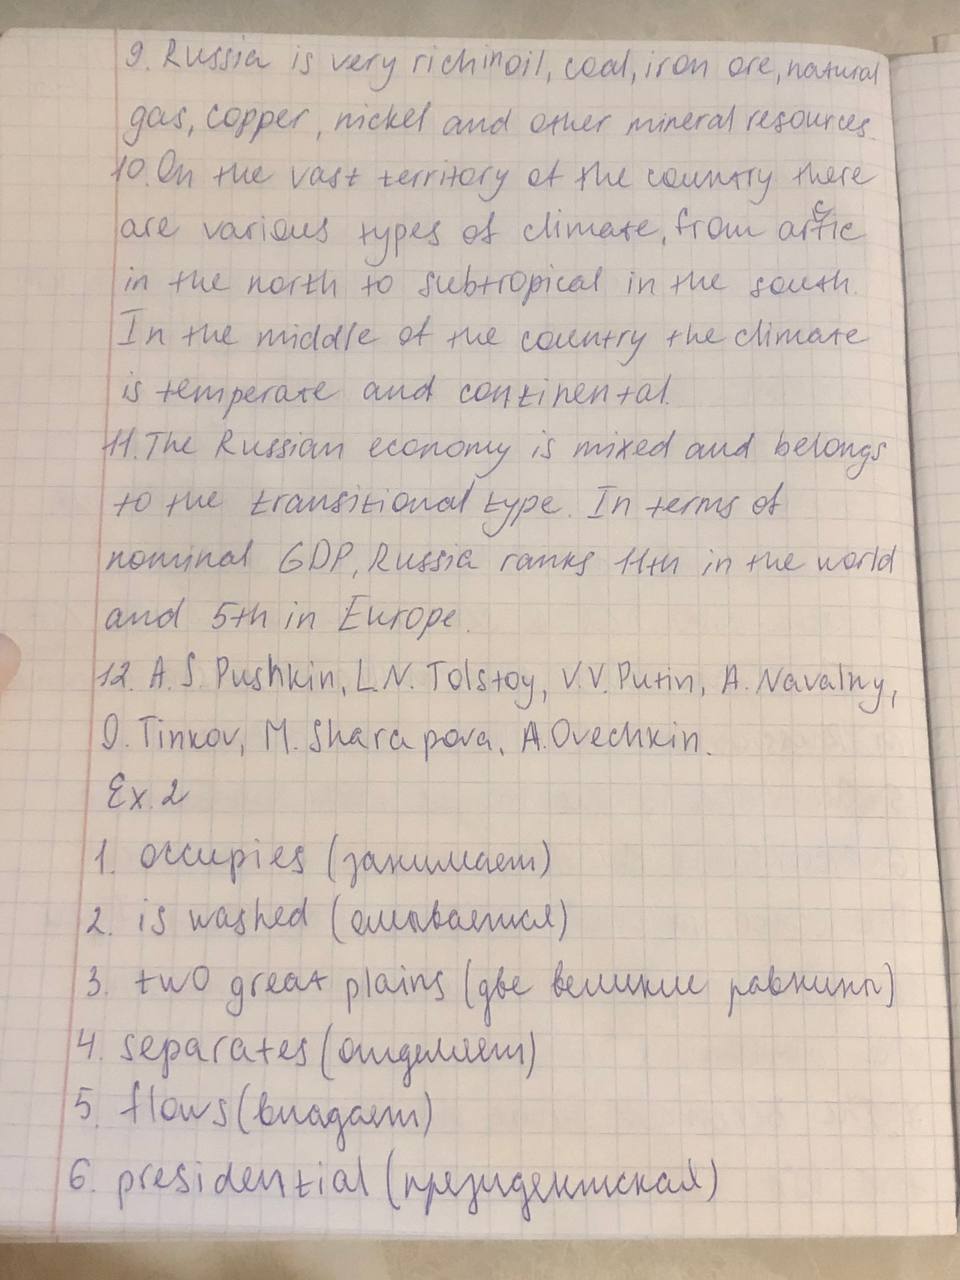 9. Russia is very rich in oil, coal, iron ore, natural
gas, copper, nickel and other mineral resources.
10. On the vast territory of the country there
are various types of climate, from arctic
in the north to subtropical in the south.
In the middle of the country the climate
is temperate and continental.
11. The Russian economy is mixed and belongs
to the transitional type. In terms of
nominal GDP, Russia ranks 11th in the world
and 5th in Europe.
12. A.S. Pushkin, L.N. Tolstoy, V.V. Putin, A. Navalny,
O. Tinkov, M. Sharapova, A. Ovechkin.
Ex. 2
1. occupies (занимает)
2. is washed (омывается)
3. two great plains (две великие равнины)
4. separates (отделяет)
5. flows (впадает)
6. presidential (президентская)